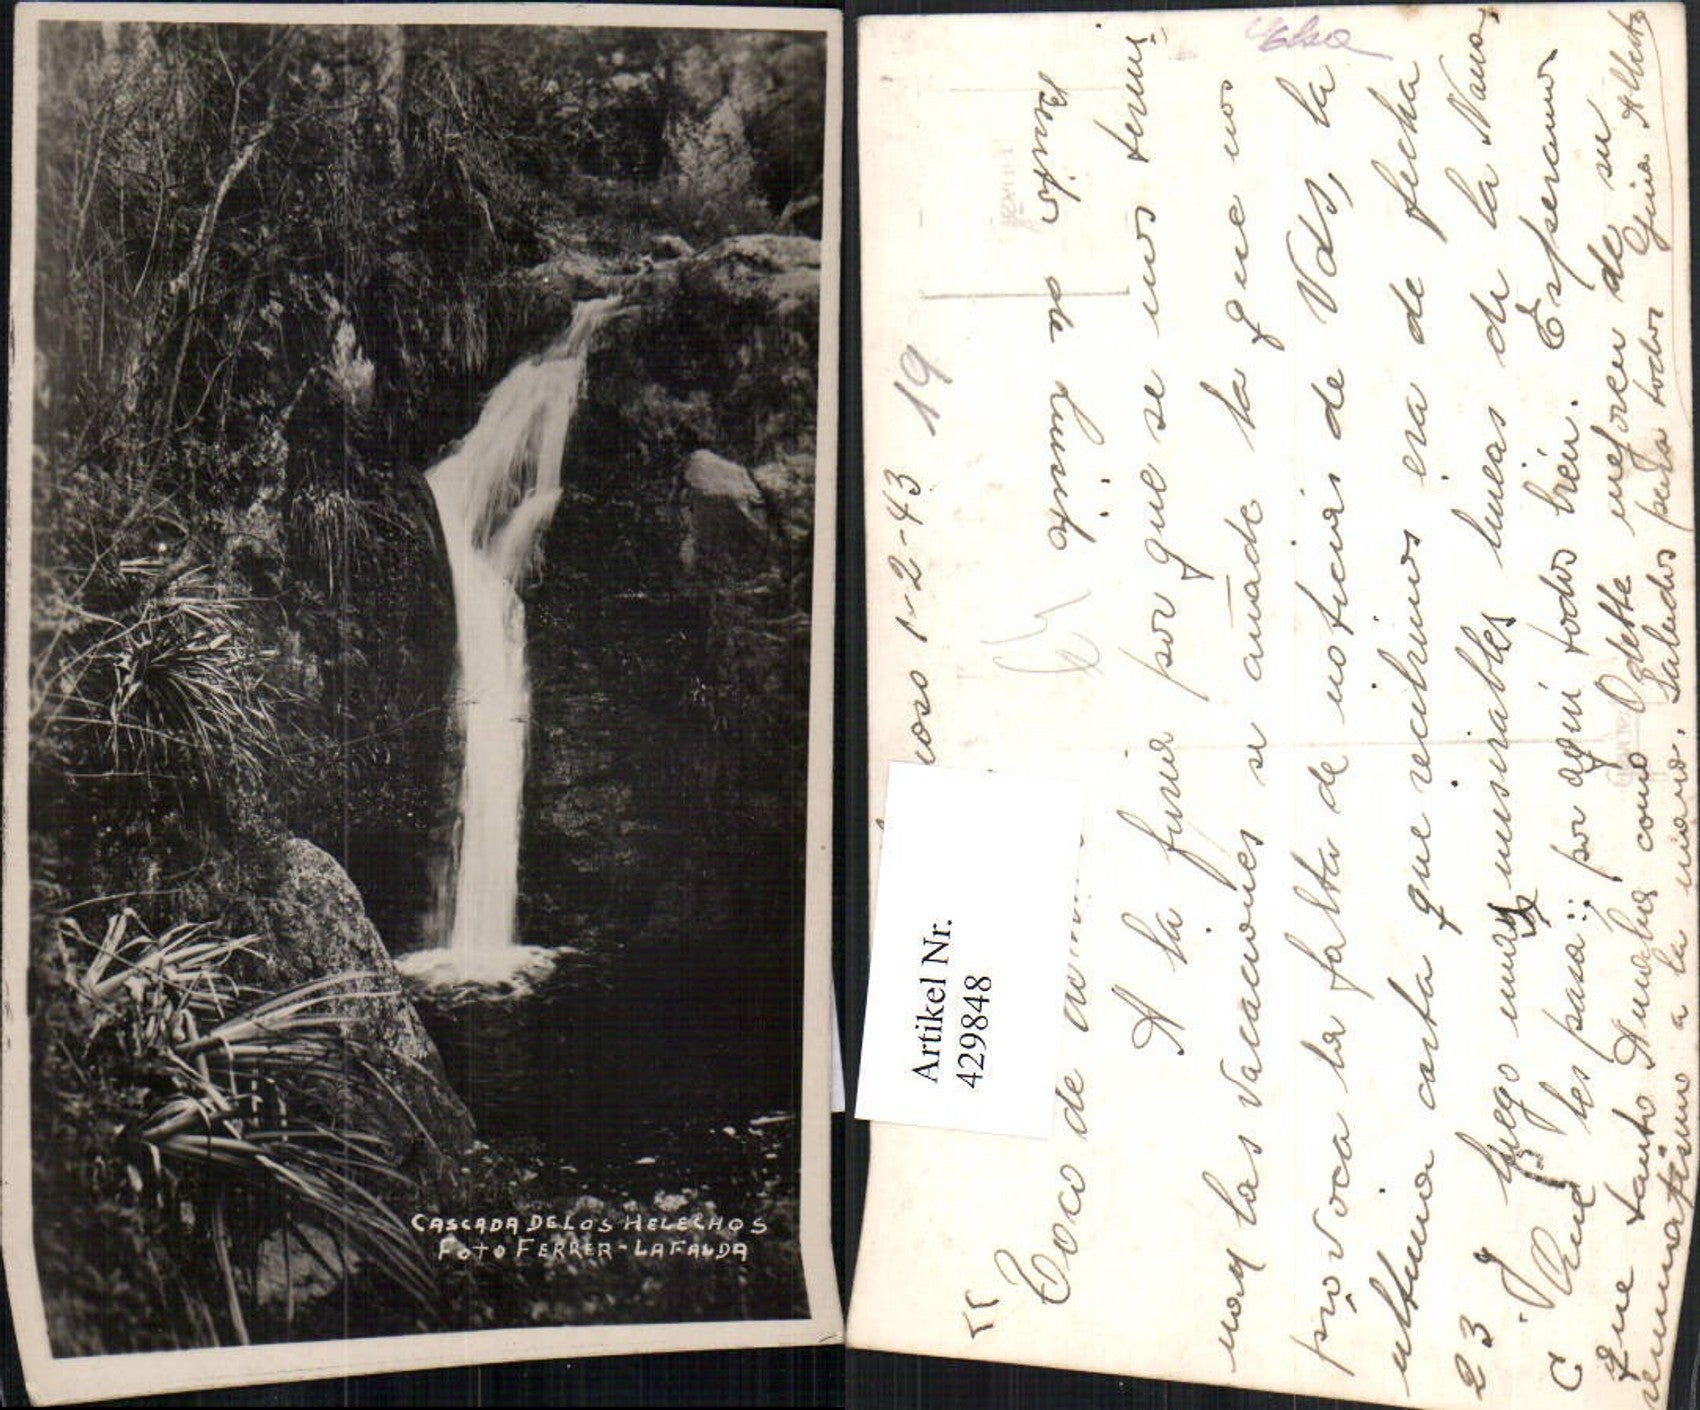 CASCADA DE LOS HELECHOS
FOTO FERRER - LA FALDA
Artikel Nr.
429848
Elsa
1-2-43 19
Coco de
Benito de Lunita
A la furia por que se nos termi
nan las vacaciones se añade la que nos
provoca la falta de noticias de Vds, la
ultima carta que recibimos era de fecha
23 y luego unas miserables lineas de la Nona,
¿Que les pasa?: por aqui todos bien. Esperamos
que tanto Amalia como Odette mejoren de su
reumatismo a la mano. Saludos para todos Gina Alberto